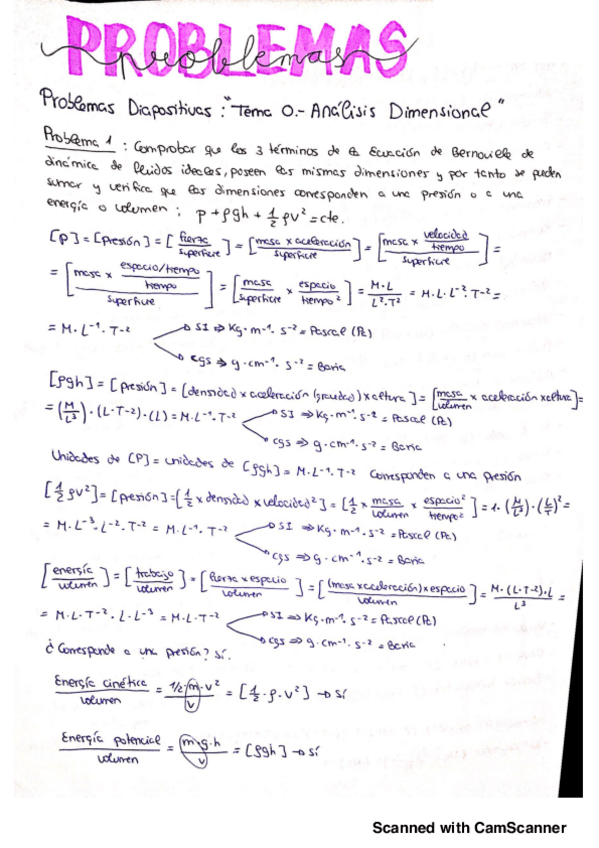 PROBLEMAS
problemas
Problemas Diapositivas: "Tema 0.- Análisis Dimensional"
Problema 1: Comprobar que los 3 términos de la Ecuación de Bernouille de
dinámica de fluidos ideales, poseen las mismas dimensiones y por tanto se pueden
sumar y verifica que las dimensiones corresponden a una presión o a una
energía o volumen: p + ρgh + 1/2 ρv² = cte.
[P] = [Presión] = [fuerza/superficie] = [masa x aceleración/superficie] = [masa x velocidad/tiempo/superficie] =
= [masa x espacio/tiempo/tiempo/superficie] = [masa/superficie x espacio/tiempo²] = M·L/L²·T² = M·L·L⁻²·T⁻² =
= M·L⁻¹·T⁻² SI ⇒ Kg·m⁻¹·s⁻² = Pascal (Pa)
cgs ⇒ g·cm⁻¹·s⁻² = Baria
[ρgh] = [presión] = [densidad x aceleración (gravedad) x altura] = [masa/volumen x aceleración x altura] =
= (M/L³)·(L·T⁻²)·(L) = M·L⁻¹·T⁻² SI ⇒ Kg·m⁻¹·s⁻² = Pascal (Pa)
cgs ⇒ g·cm⁻¹·s⁻² = Baria
Unidades de [P] = unidades de [ρgh] = M·L⁻¹·T⁻² Corresponden a una presión
[1/2 ρv²] = [presión] = [1/2 x densidad x velocidad²] = [1/2 x masa/volumen x espacio²/tiempo²] = 1·(M/L³)·(L/T)² =
= M·L⁻³·L⁻²·T⁻² = M·L⁻¹·T⁻² SI ⇒ Kg·m⁻¹·s⁻² = Pascal (Pa)
cgs ⇒ g·cm⁻¹·s⁻² = Baria
[energía/volumen] = [trabajo/volumen] = [fuerza x espacio/volumen] = [(masa x aceleración) x espacio/volumen] = M·(L·T⁻²)·L/L³ =
= M·L·T⁻²·L·L⁻³ = M·L·T⁻² SI ⇒ Kg·m⁻¹·s⁻² = Pascal (Pa)
cgs ⇒ g·cm⁻¹·s⁻² = Baria
¿Corresponde a una presión? Sí.
Energía cinética/volumen = 1/2 m·v²/v = [1/2·ρ·v²] → Sí
Energía potencial/volumen = m·g·h/v = [ρgh] → Sí
Scanned with CamScanner